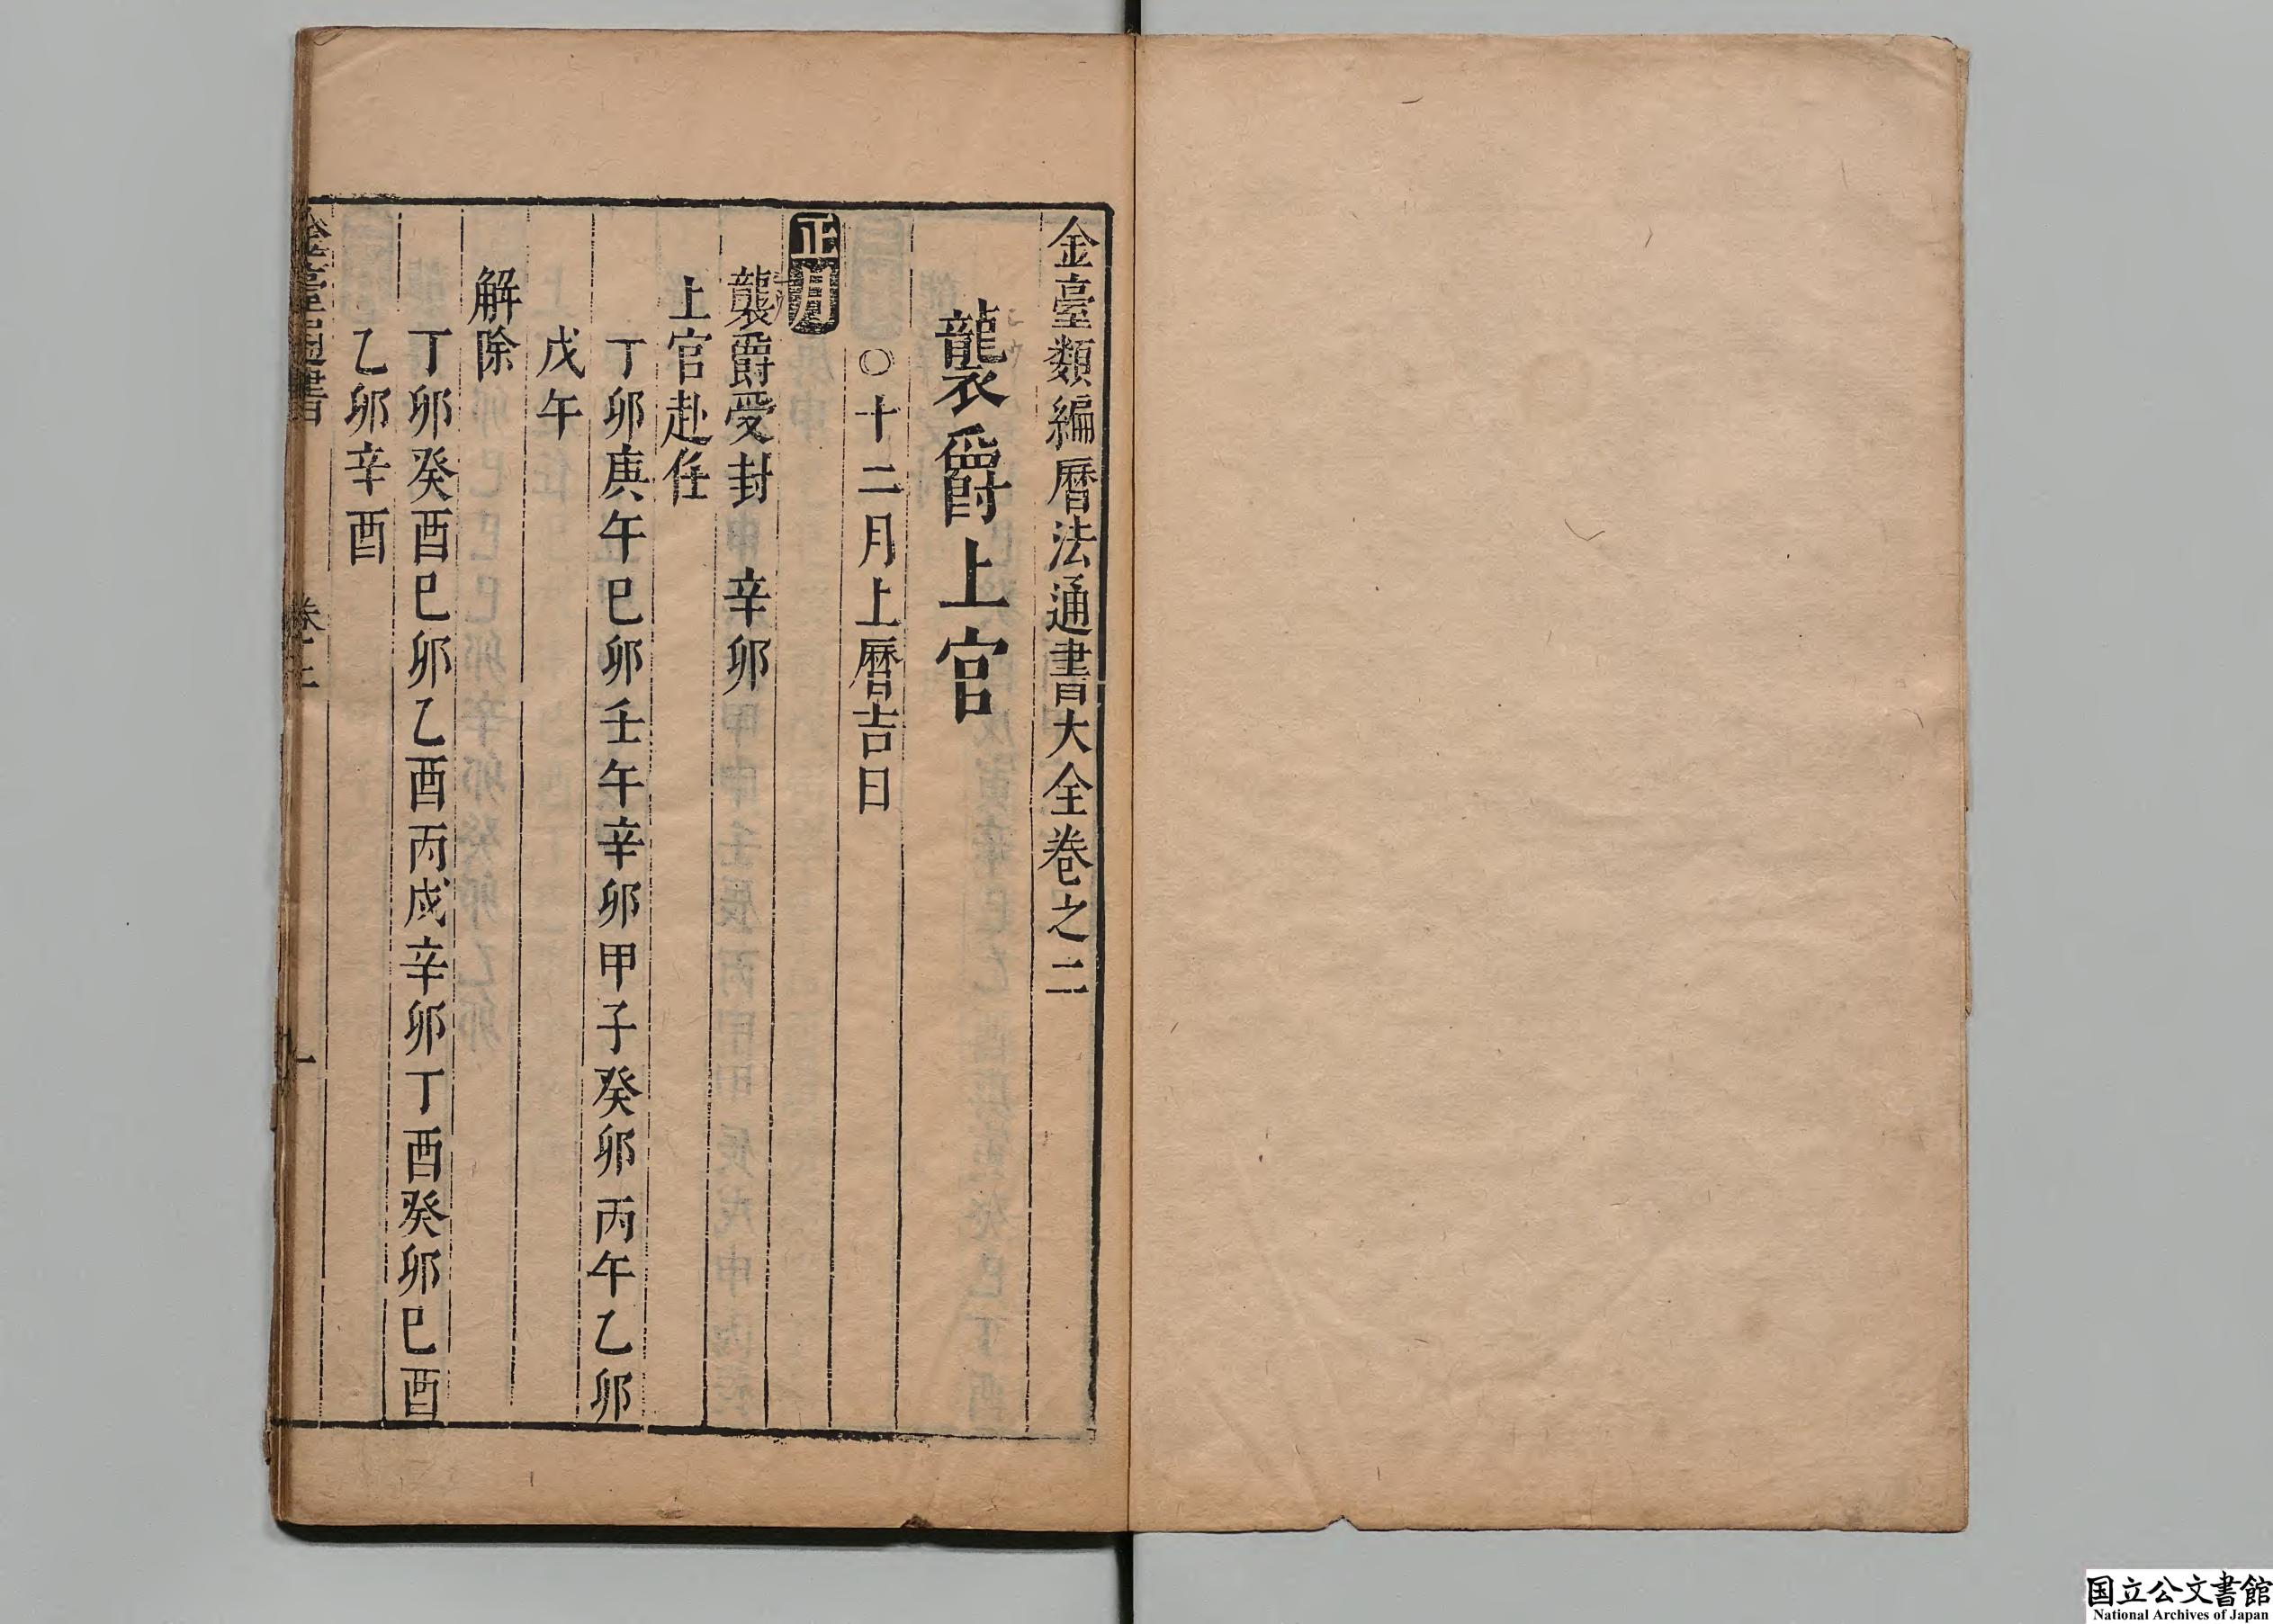 金臺類編曆法通書大全卷之二
襲爵上官
○十二月上曆吉日
正月
襲爵受封　辛卯
上官赴任
丁卯庚午巳卯壬午辛卯甲子癸卯丙午乙卯
戊午
解除
丁卯癸酉巳卯乙酉丙戌辛卯丁酉癸卯巳酉
乙卯辛酉
金臺通書　卷之二　一
国立公文書館
National Archives of Japan